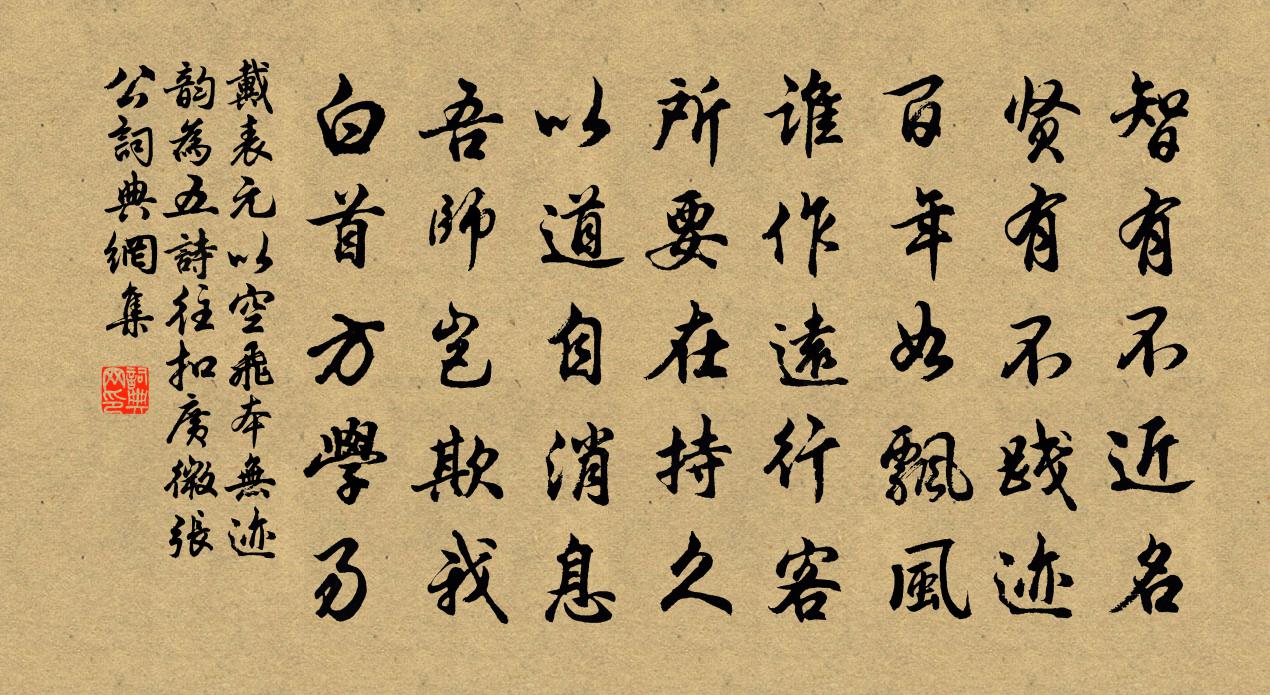 智有不近名
贤有不践迹
百年如飄風
誰作遠行客
所要在持久
以道自消息
吾師豈欺我
白首方學易
戴表元以空飛本無迹
韵為五詩往扣廣微張
公詞典網集
詞典
网印